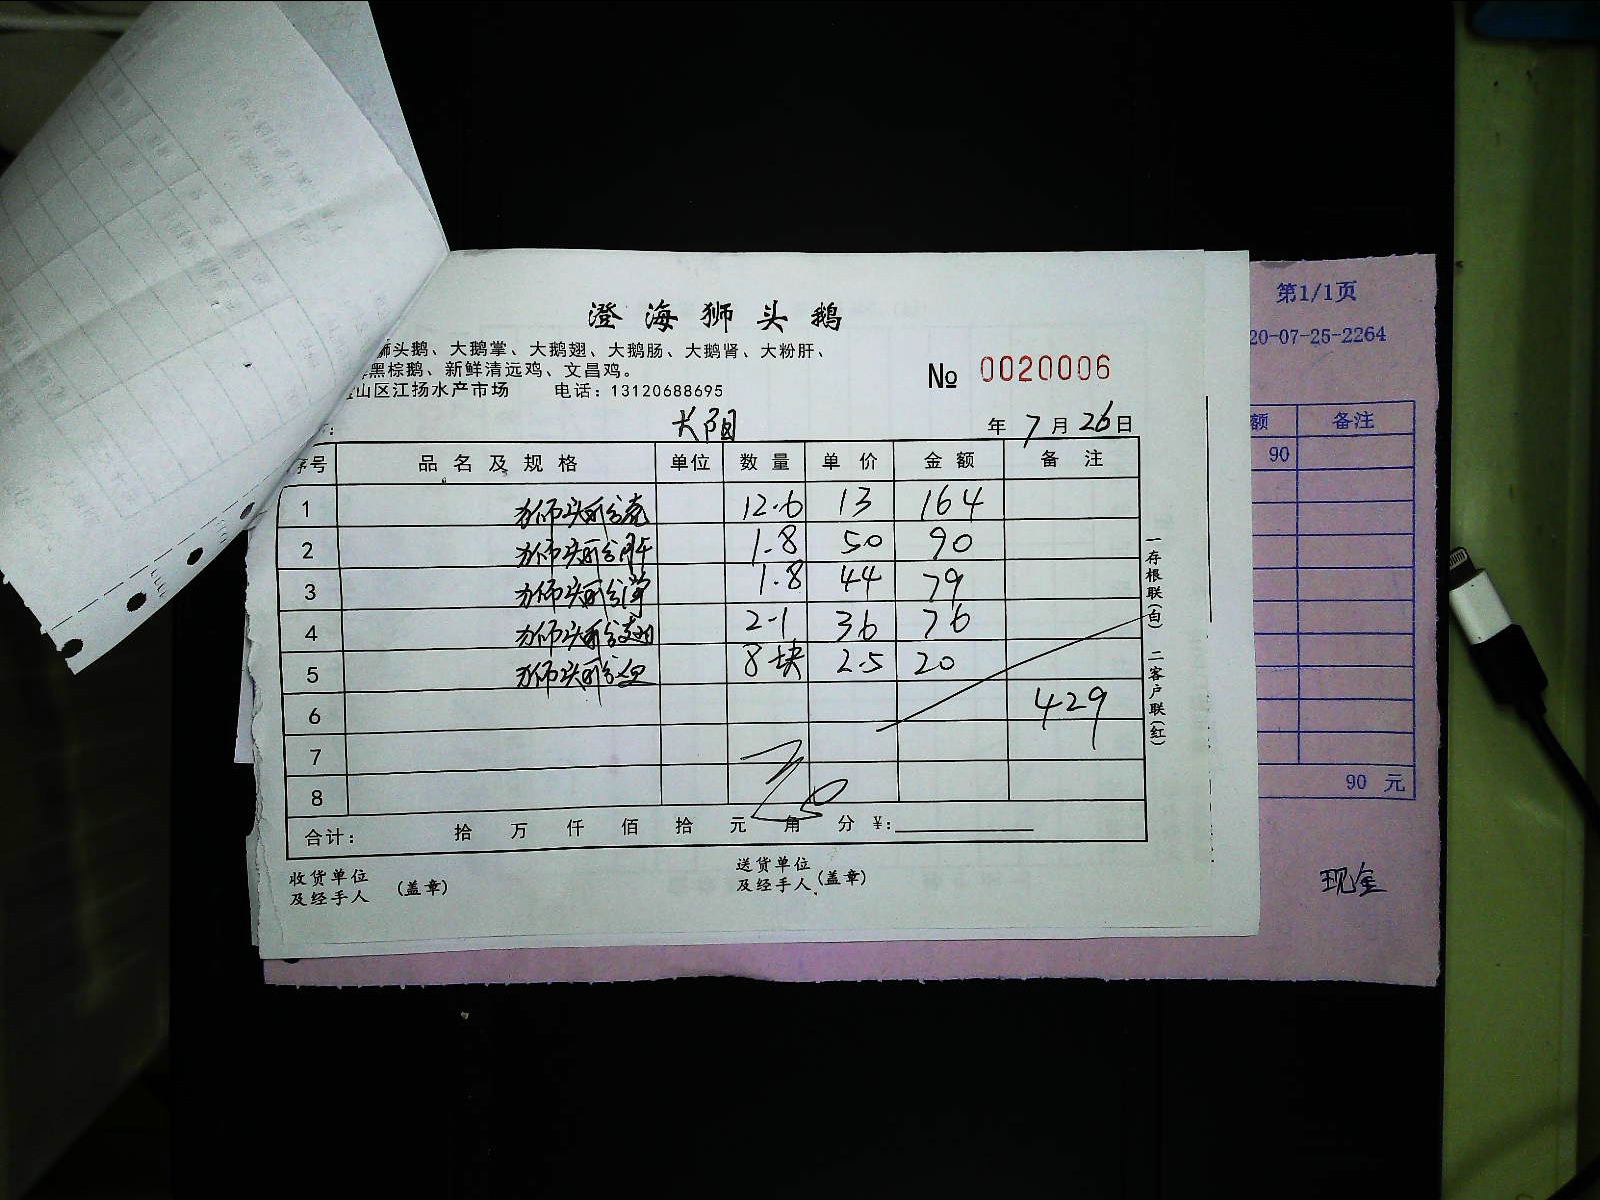 澄海狮头鹅
狮头鹅、大鹅掌、大鹅翅、大鹅肠、大鹅肾、大粉肝、
黑棕鹅、新鲜清远鸡、文昌鸡。
山区江扬水产市场 电话：13120688695
№ 0020006
长阳 年 7 月 26 日
序号 品名及规格 单位 数量 单价 金额 备注
1 狮头鹅壳 12.6 13 164
2 狮头鹅肝 1.8 50 90
3 狮头鹅掌 1.8 44 79
4 狮头鹅翅 2.1 36 76
5 狮头鹅血 8块 2.5 20
6 429
7
8
合计： 拾 万 仟 佰 拾 元 角 分 ¥:
收货单位 送货单位
及经手人 (盖章) 及经手人 (盖章)
一存根联(白) 二客户联(红)
第1/1页
20-07-25-2264
额 备注
90
90 元
现金